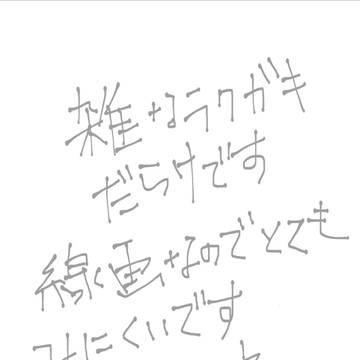 雑なラクガキ
だらけです
線画なのでとても
みにくいです